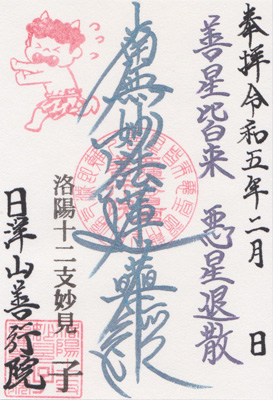 奉拝 令和五年二月 日
善星皆来 悪星退散
南無妙法蓮華経
洛陽十二支妙見 子
日洋山善行院